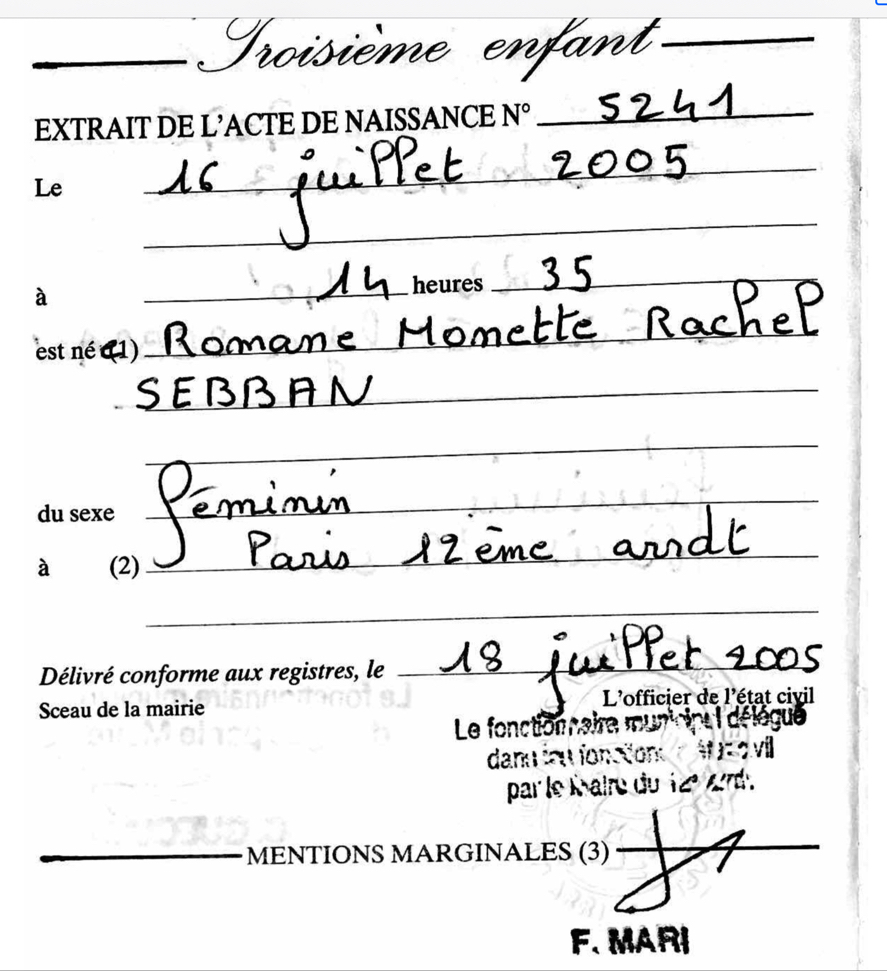 Troisième enfant
EXTRAIT DE L'ACTE DE NAISSANCE N° 5241
Le 16 juillet 2005
à 14 heures 35
est né(e) (1) Romane Monette Rachel
SEBBAN
du sexe féminin
à (2) Paris 12ème arrdt
Délivré conforme aux registres, le 18 juillet 2005
Sceau de la mairie L'officier de l'état civil
Le fonctionnaire municipal délégué
dans les fonctions d'état civil
par le Maire du 12e Arrdt.
MENTIONS MARGINALES (3)
F. MARI